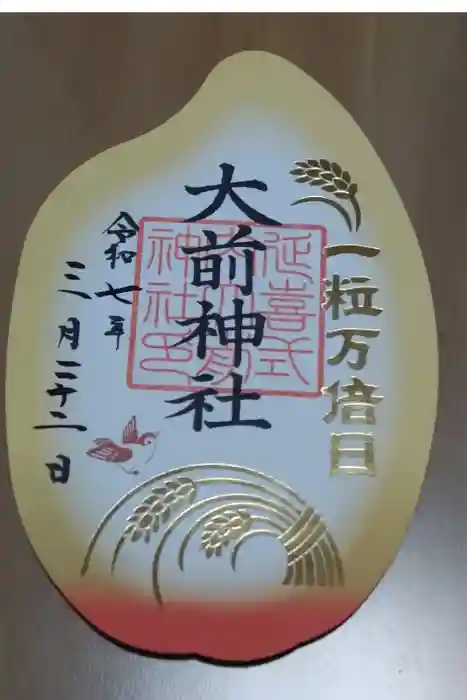 一粒万倍日
大前神社
延喜式
大前
神社印
令和七年
三月二十二日